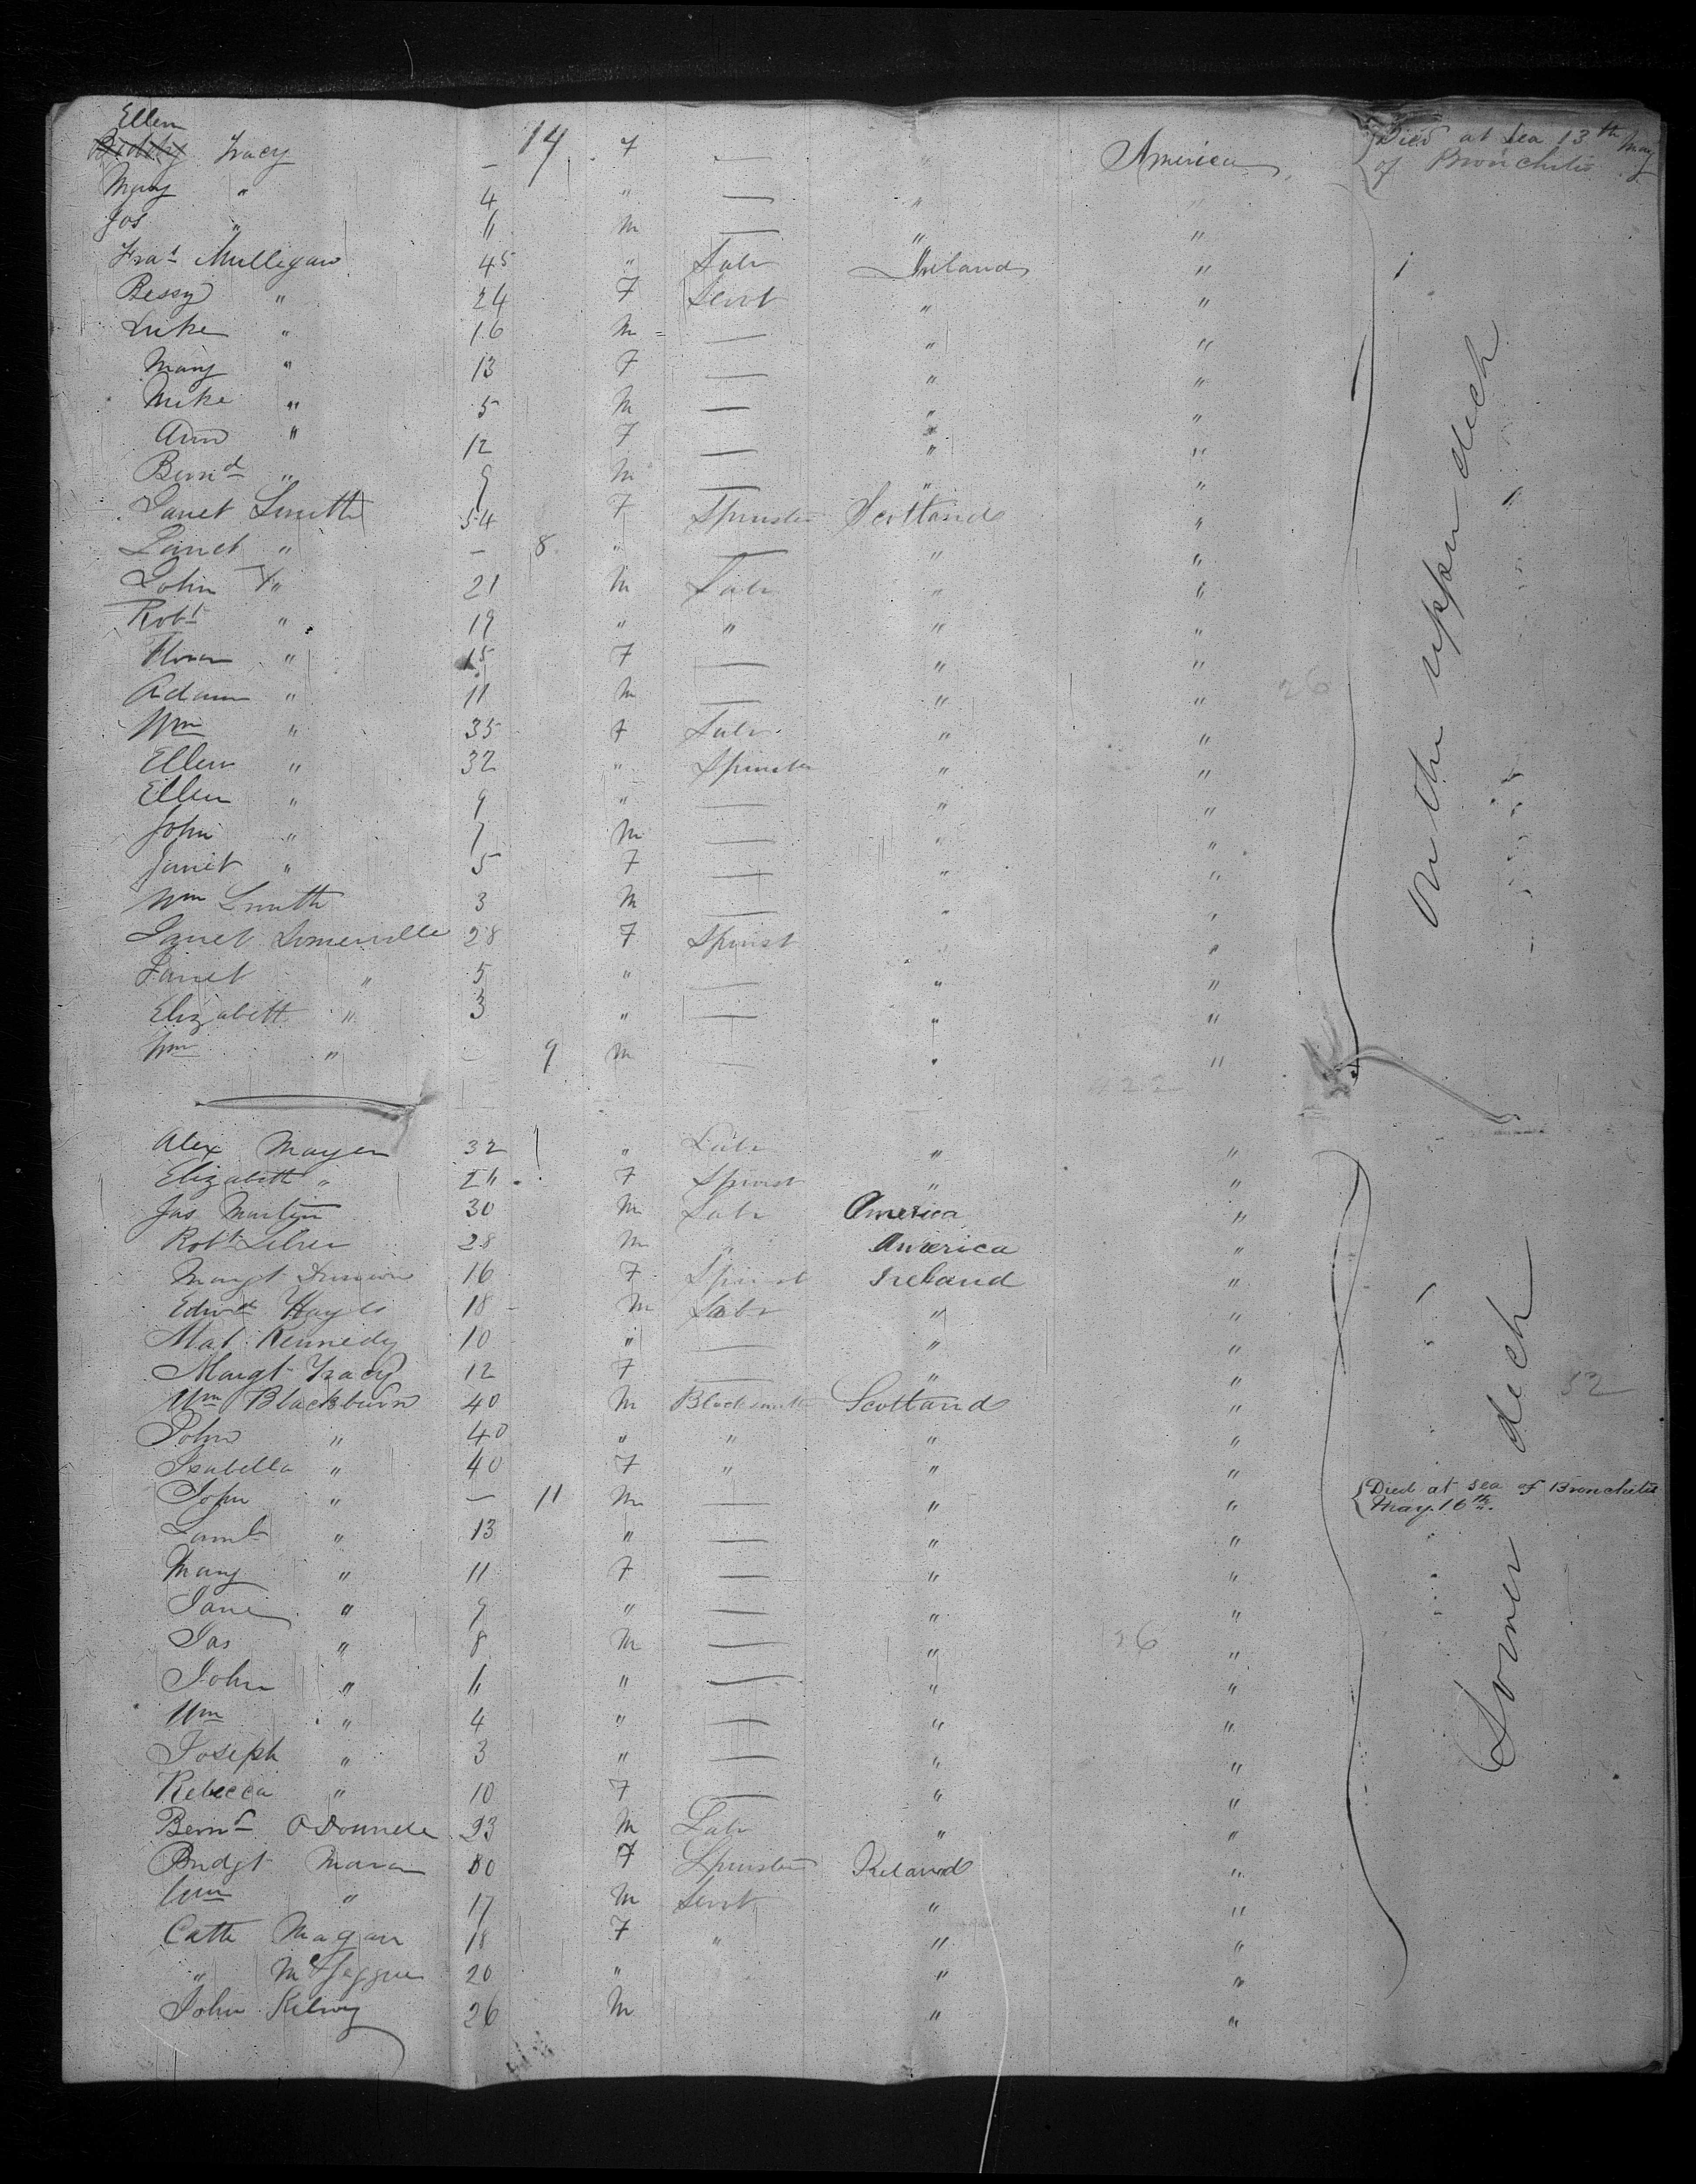 Ellen
Biddy Tracy — 14 F — " America { Died at Sea 13th May
of Bronchitis
Mary " 4 " — " "
Jos " 6 M — " "
Fras Mulligan 45 " Labr Ireland "
Bessy " 24 F Servt " "
Luke " 16 M — " "
Mary " 13 F — " "
Mike " 5 M — " "
Ann " 12 F — " "
Bernd " 9 M — " "
Janet Smith 54 F Spinster Scotland "
Janet " — 8 " — " "
John " 21 M Labr " "
Robt " 19 " " " "
Flora " 15 F — " "
Adam " 11 M — " "
Wm " 35 F Labr " "
Ellen " 32 " Spinster " "
Ellen " 9 " — " "
John " 7 M — " "
Janet " 5 F — " "
Wm Smith 3 M — " "
Janet Somerville 28 F Spinst " "
Janet " 5 " — " "
Elizabeth " 3 " — " "
Wm " — 9 M — " "
On the upper deck
26
Alex Mayer 32 " Labr " "
Elizabeth " 26 F Spinst " "
Jas Martin 30 M Labr America "
Robt 28 M " America "
Margt 16 F Spinst Ireland "
Edwd Hayes 18 M Labr " "
Mat Kennedy 10 " — " "
Margt Tracy 12 F — " "
Wm Blackburn 40 M Blacksmith Scotland "
John " 40 " " " "
Isabella " 40 F " " "
John " — 11 M — " " { Died at sea of Bronchitis
May 16th.
Saml " 13 " — " "
Mary " 11 F — " "
Jane " 9 " — " "
Jas " 8 M — " "
John " 6 " — " "
Wm " 4 " — " "
Joseph " 3 " — " "
Rebecca " 10 F — " "
Bernd O Donnele 23 M Labr " "
Bridgt Maran F Spinster Ireland "
Wm " 17 M Servt " "
Cath Magan 18 F " " "
" 20 " " "
John 26 M " "
Lower deck
32
26